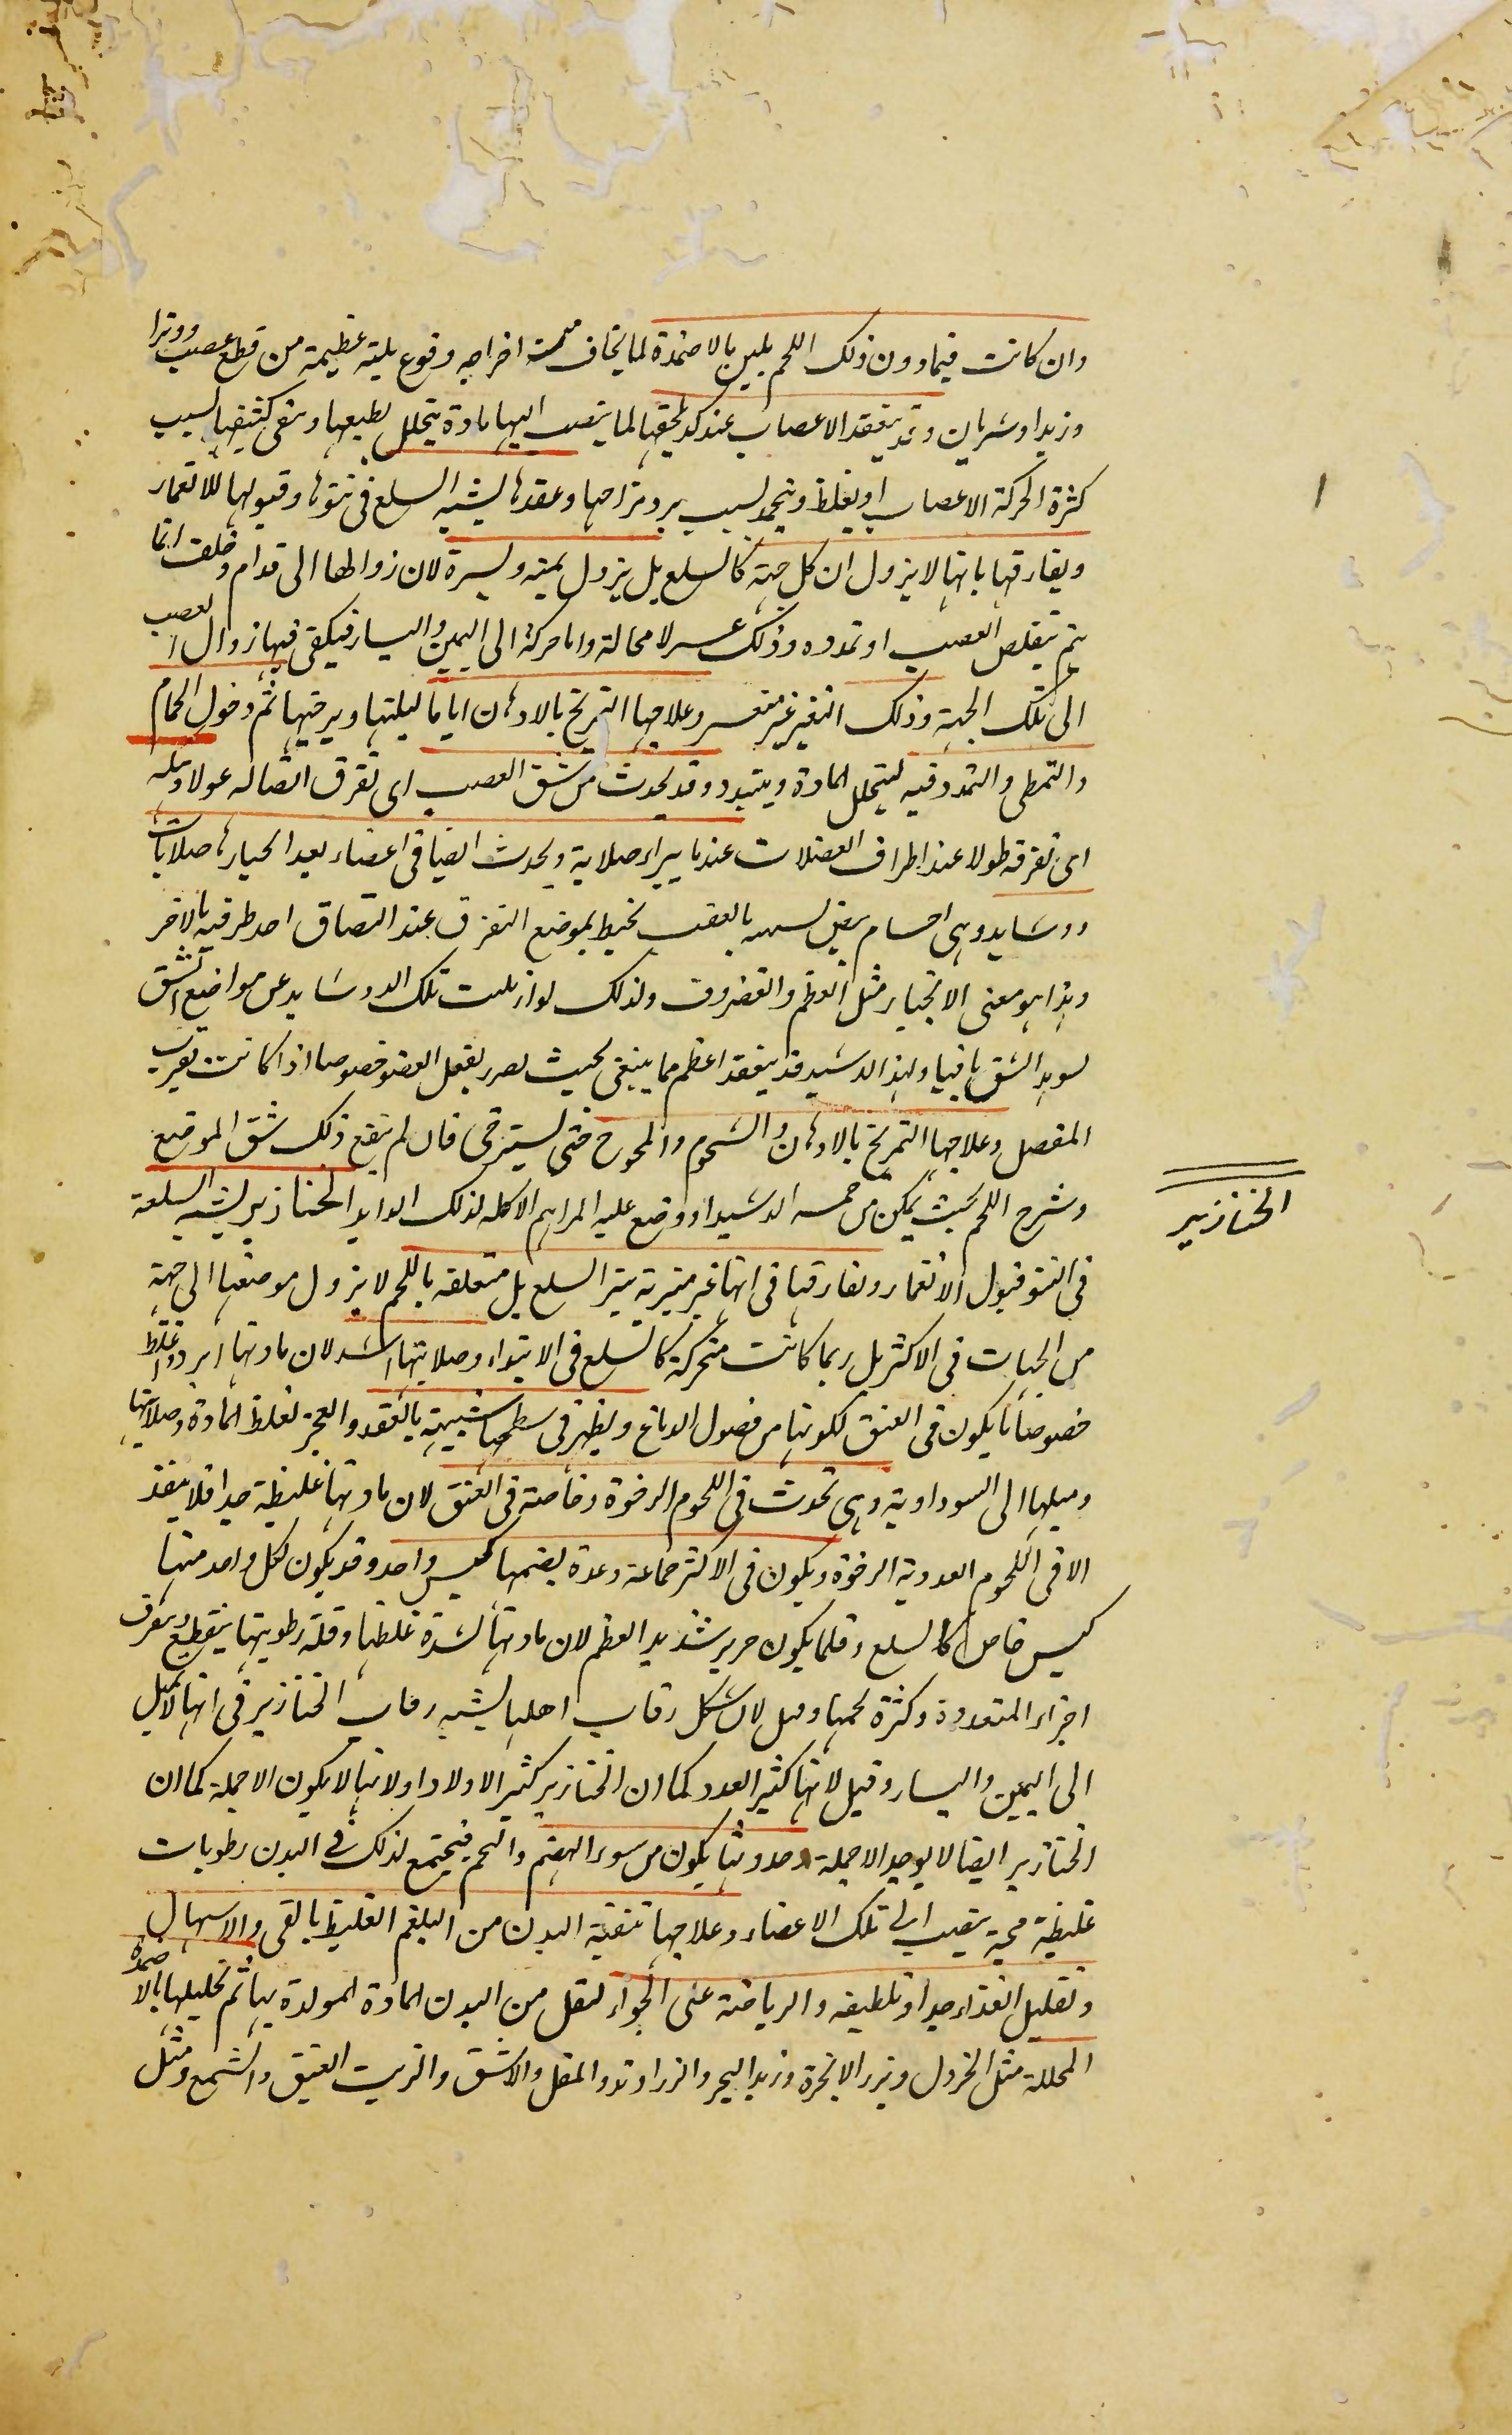 وان كانت فيما دون ذلك اللحم يلين بالاضمدة لما يخاف من اخراجه وقوع بلية عظيمة من قطع عصب ووترا
وريد او شريان وقد ينعقد الاعصاب عند كد يلحقها لما ينصب اليها مادة يتحلل لطيفها ويبقى كثيفها لسبب
كثرة الحركة الاعصاب او يغلظ وينجمد لسبب برد مزاجها وعقدها يشبه السلع فى نتوها وقبولها للانغمار
ويفارقها بانها لا يزول الى كل جهة كالسلع بل يزول يمنة ويسرة لان زوالها الى قدام وخلف انما
يتم بتقلص العصب او تمدده وذلك عسر لا محالة واما حركة الى اليمين واليسار فيكفى فيها زوال العصب
الى تلك الجهة وذلك التغير غير متعسر وعلاجها التمريخ بالادهان اياما ليلينها ويرخيها ثم دخول الحمام
والتمطى والتمدد فيه ليتحلل المادة ويتبدد وقد يحدث من شق العصب اى تفرق اتصاله عولا وبله
اى تفرقه طولا عند اطراف العضلات عندما يبراء صلابة ويحدث ايضا فى اعضاء بعد انجبارها صلابات
ودشايد وهى اجسام بيض شبيه بالعصب يحيط بموضع التفرق عند التصاق احد طرفيه بالاخر
وهذا هو معنى الانجبار مثل العظم والغضروف ولذلك لو ازيلت تلك الدوشايد عن مواضع الشق
لوبد الشق باقيا ولهذا الدشبد قد ينعقد اعظم مما ينبغى بحيث يضر بفعل العضو خصوصا اذا كانت بقرب
المفصل وعلاجها التمريخ بالادهان والشحوم والمخوخ حتى يسترخى فان لم ينفع ذلك شق الموضع
وشرح اللحم بحيث يمكن من الدشبد ووضع عليه المراهم الاكله لذلك الخنازير يشبه السلعة
فى النتو قبول الانغمار وتفارقها فى انها غير متبرية تبر السلع بل متعلقه باللحم لا يزول موضعها الى جهة
من الجهات فى الاكثر بل ربما كانت متحركة كالسلع فى الابتداء وصلابتها اشد لان مادتها ابرد واغلظ
خصوصا ما يكون فى العنق لكونها من فضول الدماغ ويظهر فى سطحها شبيهة بالعقد والعجر لغلظ المادة وصلابتها
وميلها الى السوداوية وهى تحدث فى اللحوم الرخوة وخاصة فى العنق لان مادتها غليظة جدا فلا ينفذ
الا فى اللحوم الغددية الرخوة ويكون فى الاكثر جماعة وعدة يضمها كيس واحد وقد يكون لكل واحد منها
كيس خاص كالسلع وقلما يكون خنزير شديد العظم لان مادتها لشدة غلظها وقلة رطوبتها يتقطع ويتفرق
اجزاء المتعددة وكثرة لحمها وقيل لان شكل رقاب اهلها يشبه رقاب الخنازير فى انها لا يميل
الى اليمين واليسار وقيل لانها كثير العدد كما ان الخنازير كثير الاولاد او لانها لا يكون الا جملة كما ان
الخنازير ايضا لا يوجد الا جملة وحدوثها يكون من سوء الهضم والتخم فيجتمع لذلك فى البدن رطوبات
غليظة فجة ينصب الى تلك الاعضاء وعلاجها تنقية البدن من البلغم الغليظ بالقى والاسهال
وتقليل الغذاء جدا وتلطيفه والرياضة على الخواء لتقل من البدن المادة المولدة بها ثم تحليلها بالاضمدة
المحللة مثل الخردل وبزر الانجرة وزبد البحر والزراوند والمقل والاشق والزيت العتيق والشمع ومثل
الخنازير